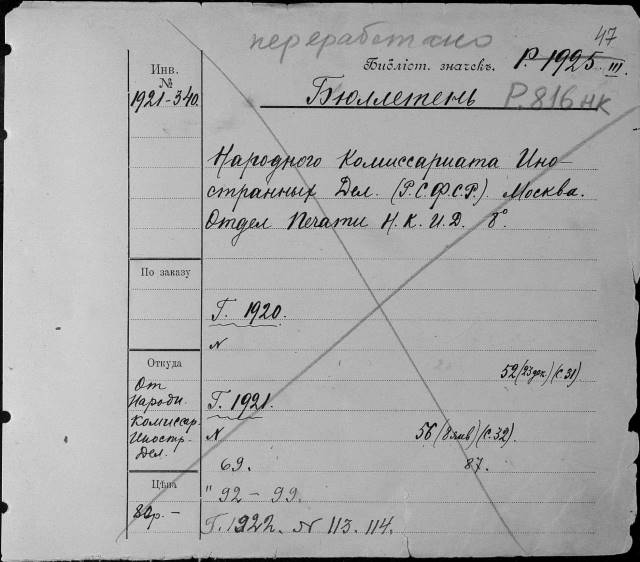 переработано
47
Инв. №
1921-340.
Библіот. значекъ. Р. 1925 III.
Бюллетень Р.816 нк
Народного Комиссариата Ино-
странных Дел. (Р.С.Ф.С.Р.) Москва.
Отдел Печати Н.К.И.Д. 8°.
По заказу
Г. 1920.
N
52 (23 дек.) (С.31)
Откуда
От
Народн.
Комиссар.
Иностр.
Дел.
Г. 1921.
N 56 (8 янв) (С.32).
69. 87.
Цѣна
80р. –
" 92 – 99.
Г. 1922. N 113. 114.